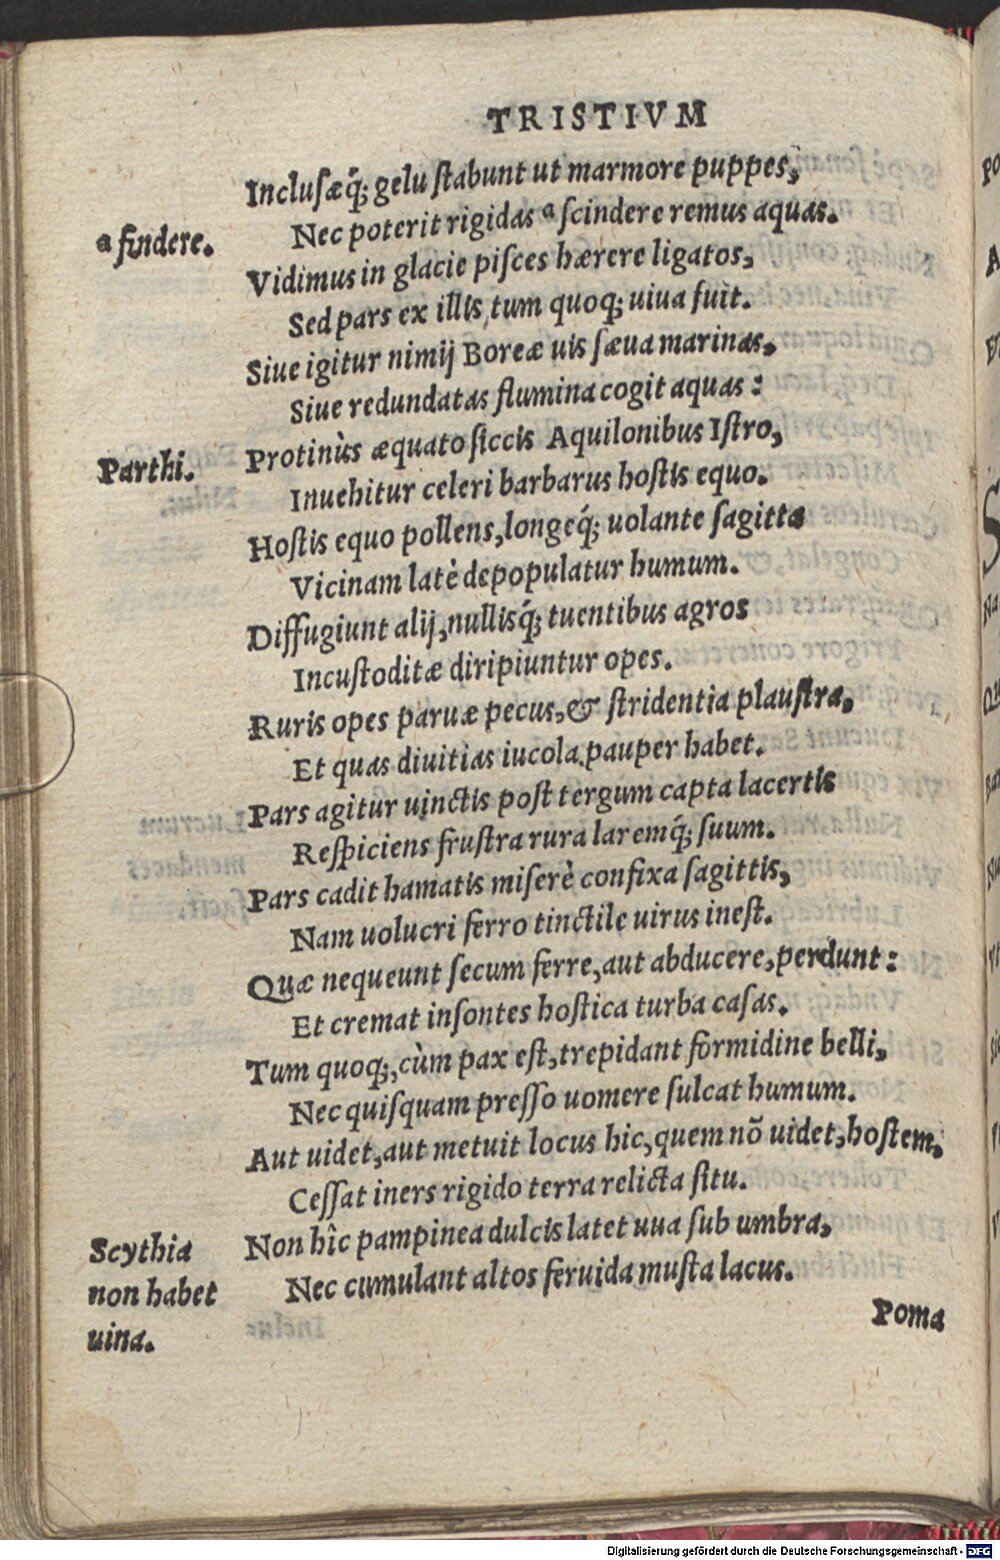 TRISTIVM
Incluſæq́; gelu ſtabunt ut marmore puppes,
Nec poterit rigidas ª ſcindere remus aquas.
ª findere.
Vidimus in glacie piſces hærere ligatos,
Sed pars ex illis tum quoq; uiua fuit.
Siue igitur nimij Boreæ uis ſæua marinas,
Siue redundatas flumina cogit aquas:
Protinùs æquato ſiccis Aquilonibus Iſtro,
Parthi.
Inuehitur celeri barbarus hoſtis equo.
Hoſtis equo pollens, longeq́; uolante ſagitta
Vicinam latè depopulatur humum.
Diffugiunt alij, nullisq́; tuentibus agros
Incuſtoditæ diripiuntur opes.
Ruris opes paruæ pecus, & ſtridentia plauſtra,
Et quas diuitias iucola pauper habet.
Pars agitur uinctis poſt tergum capta lacertis
Reſpiciens fruſtra rura laremq́; ſuum.
Pars cadit hamatis miſerè confixa ſagittis,
Nam uolucri ferro tinctile uirus ineſt.
Quæ nequeunt ſecum ferre, aut abducere, perdunt:
Et cremat inſontes hoſtica turba caſas.
Tum quoq;, cùm pax eſt, trepidant formidine belli,
Nec quiſquam preſſo uomere ſulcat humum.
Aut uidet, aut metuit locus hic, quem nõ uidet, hoſtem,
Ceſſat iners rigido terra relicta ſitu.
Non hîc pampinea dulcis latet uua ſub umbra,
Nec cumulant altos feruida muſta lacus.
Scythia
non habet
uina.
Poma
Digitalisierung gefördert durch die Deutsche Forschungsgemeinschaft - DFG